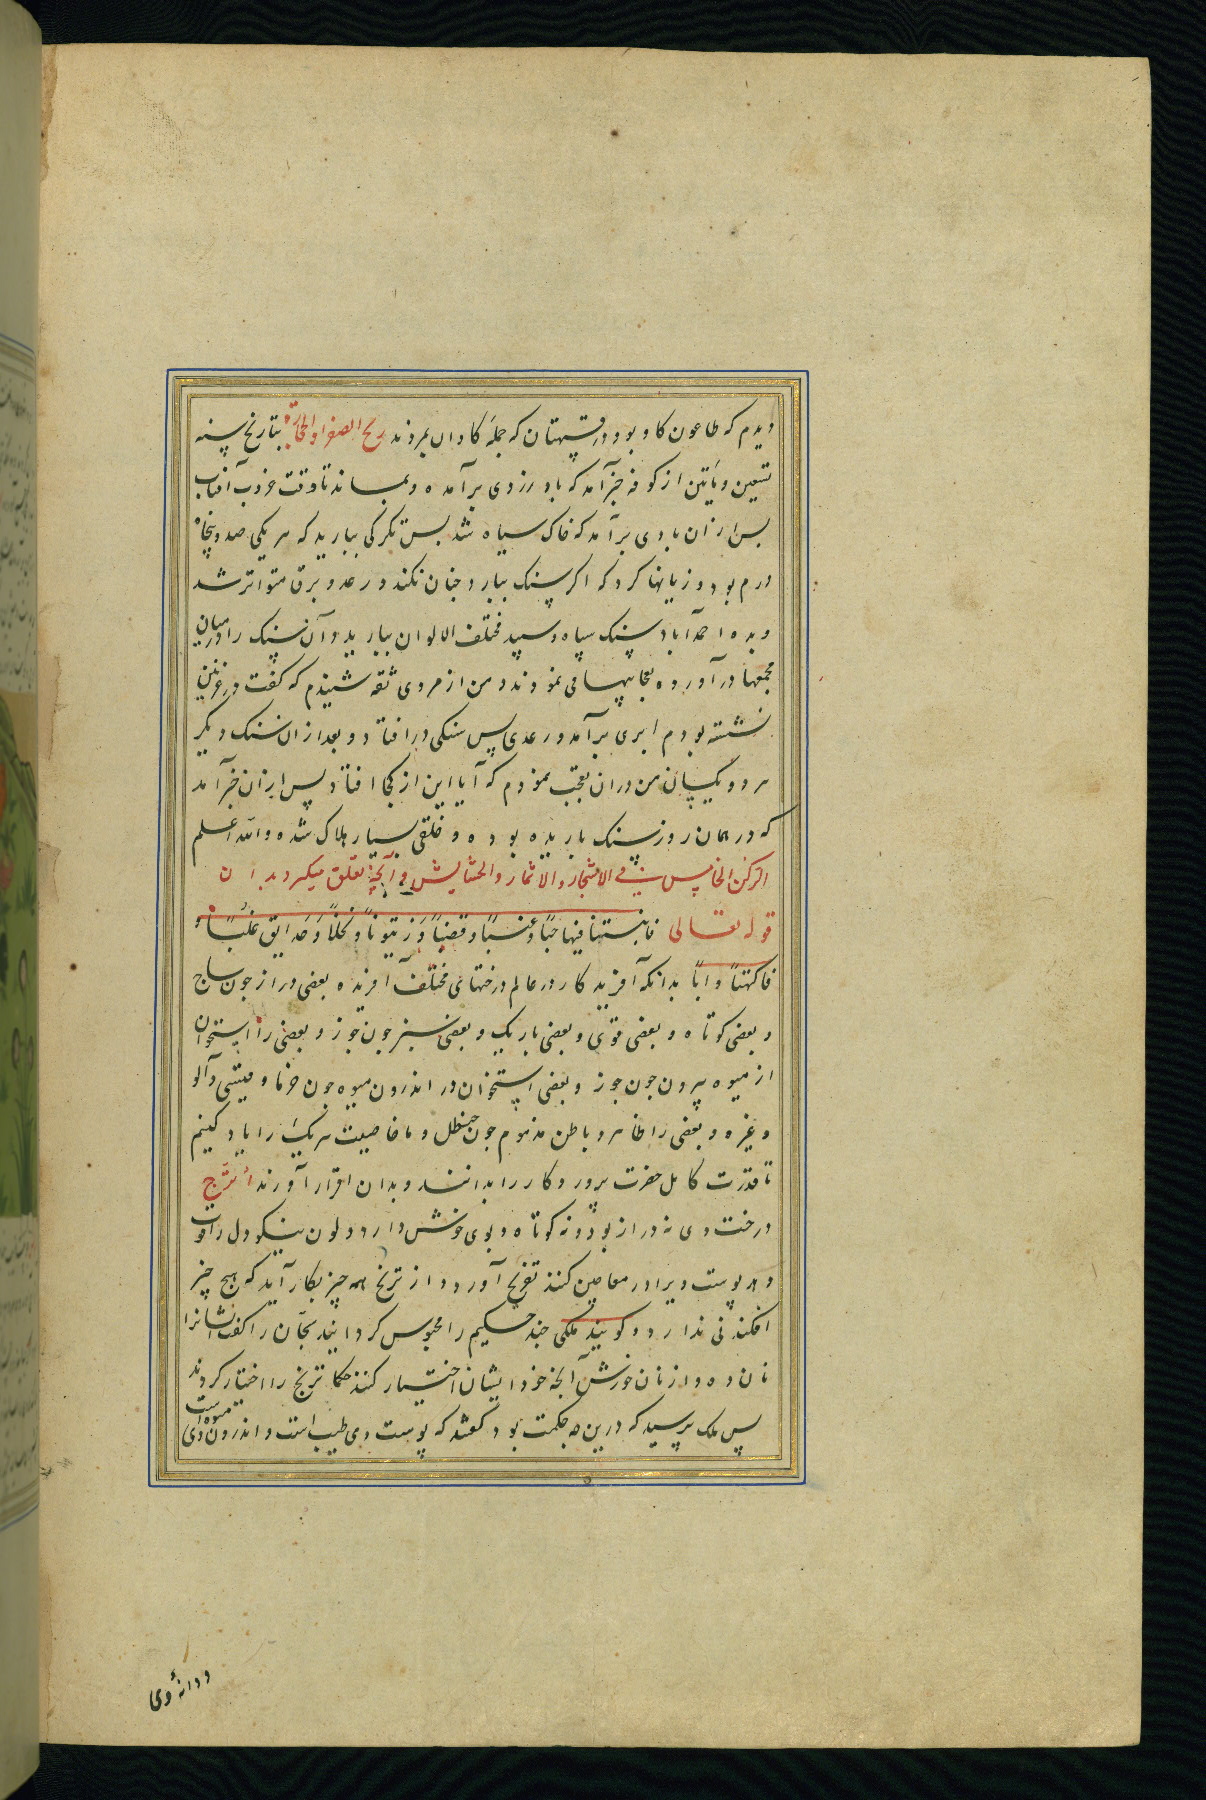 دیدم که طاعون کاو بود در قهستان که جمله کاوان بمردند ریح الصفرا و الحجارة بتاریخ سنه
تسعین و مأتین از کوفه خبر آمد که باد زردی برآمده و بماند تا وقت غروب آفتاب
پس از ان بادی برآمد که خاک سیاه شد پس تکرکی ببارید که هر یکی صد و پنجاه
درم بود و زیانها کرد که اکر سنک ببارد جنان نکند و رعد و برق متواتر شد
و بده احمدآباد سنک سیاه و سپید مختلف الالوان ببارید و آن سنک را درمیان
مجمعها درآورده عجایبها می نمودند و من از مردی ثقه شنیدم که کفت در غزنین
نشسته بودم ابری برآمد و رعدی پس سنکی درافتاد و بعد از ان سنک دیکر
هر دو یکسان من دران تعجب نمودم که آیا این از کجا افتاد پس از ان خبر آمد
که در همان روز سنک باریده بوده و خلقی بسیار هلاک شده والله اعلم
الرکن الخامس فی الاشجار و الاثمار و الحشایش و آنچه تعلق میکیرد بدان
قوله تعالی فانبتنا فیها حبًا و عنبًا و قضبًا و زیتونًا و نخلًا و حدایق غلبًا و
فاکهةً و ابًا بدانکه آفریدکار در عالم درختهای مختلف آفریده بعضی دراز جون ساج
و بعضی کوتاه و بعضی قوی و بعضی باریک و بعضی سبز جون جوز و بعضی را استخوان
از میوه بیرون جون جوز و بعضی استخوان در اندرون میوه جون خرما و میشی و آلو
و غیره و بعضی را ظاهر و باطن مذموم جون حنظل و ما خاصیت هر یک را یاد کنیم
تا قدرت کامل حضرت پروردکار را بدانند و بدان اقرار آورند أترج
درخت وی نه دراز بود و نه کوتاه و بوی خوش دارد و لون نیکو و دل را قوت
دهد پوست ویرا در معاجین کنند تفریح آورد و از ترنج همه چیز بکار آید که هیچ چیز
افکندنی ندارد و کویند ملکی چند حکیم را محبوس کردانید سجان را کفت ایشانرا
نان ده و از نان خورش آنچه خود ایشان اختیار کنند حکما ترنج را اختیار کردند
پس ملک پرسید که درین چه حکمت بود کفتند که پوست وی طیب است و اندرون وی میوه است
و دانهٔ وی